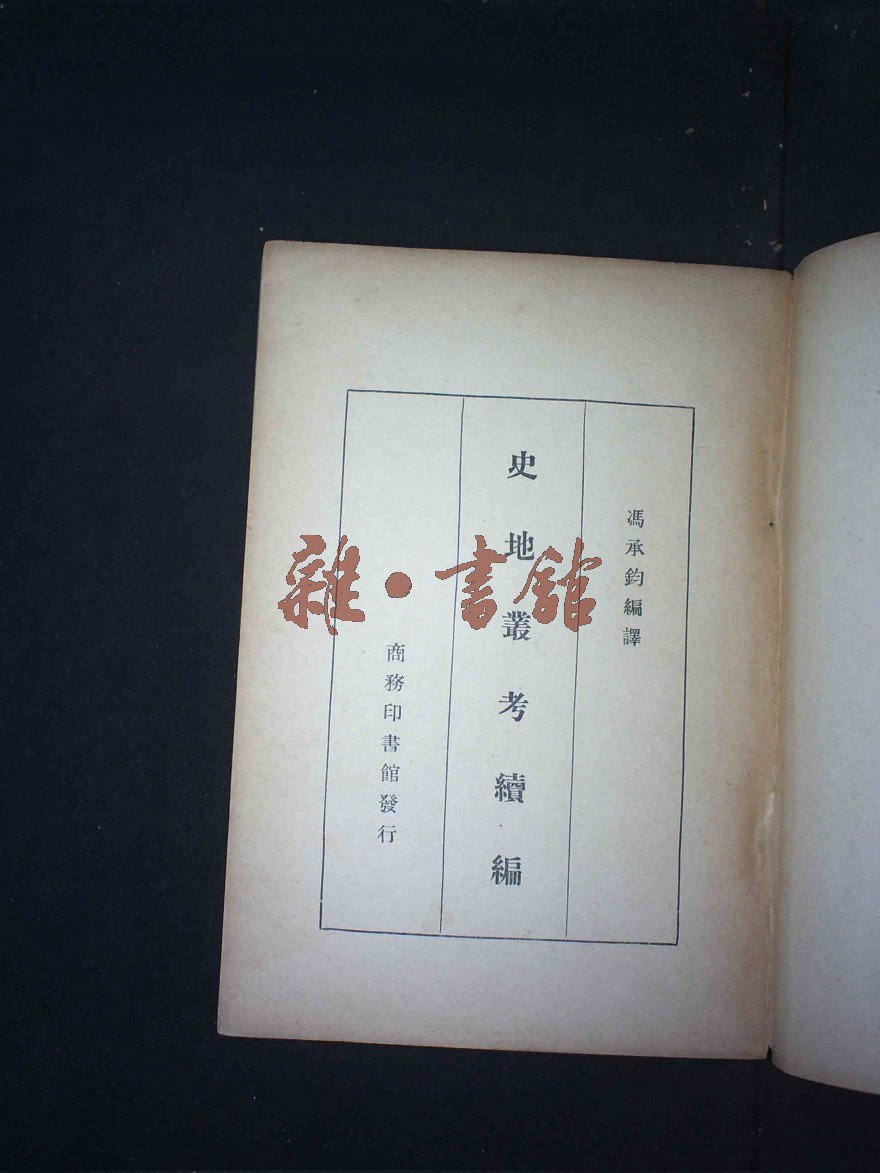 馮承鈞編譯
史地叢考續編
商務印書館發行
雜·書館